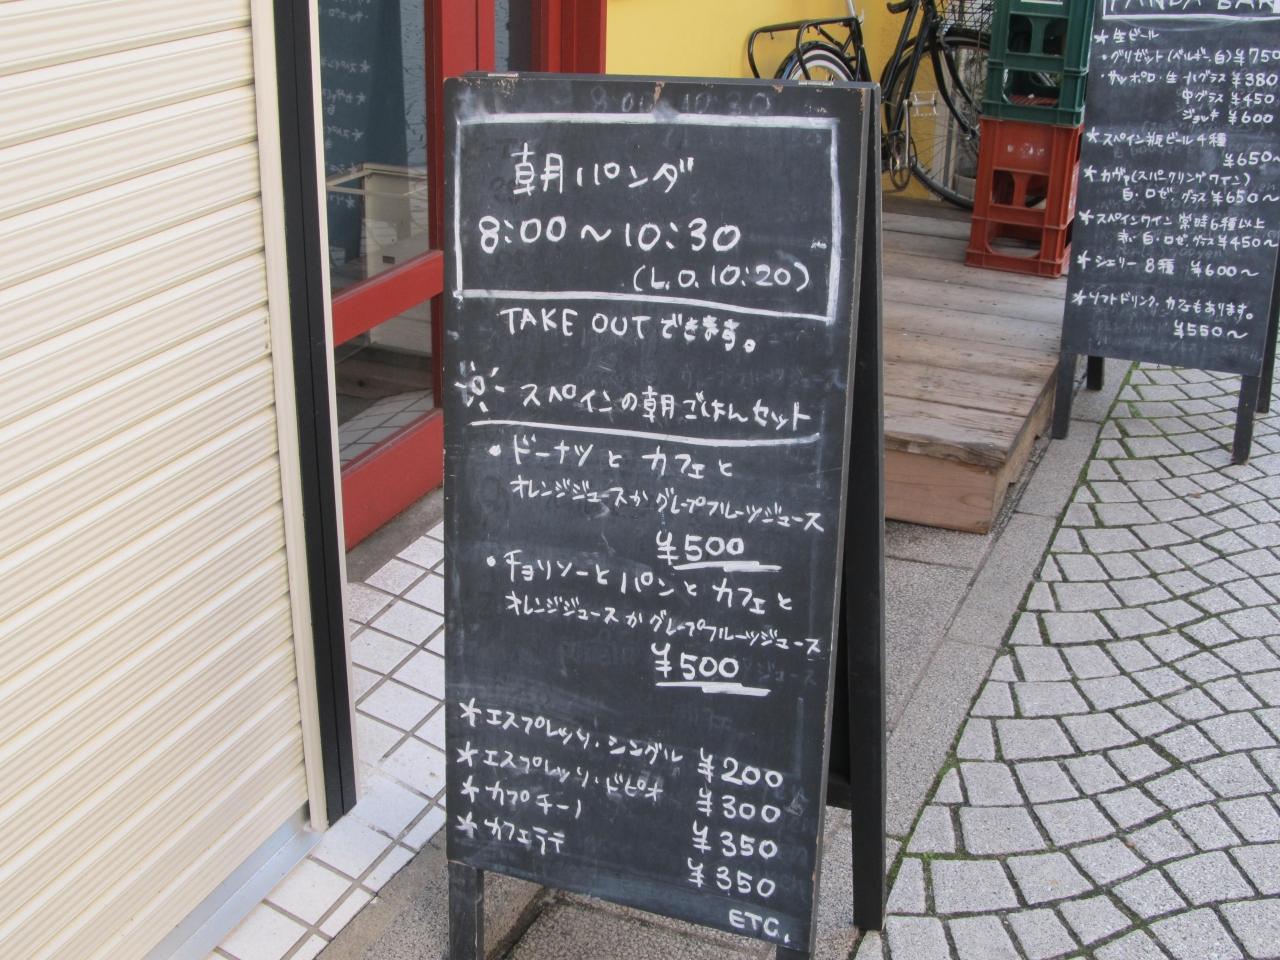 朝パンダ
8:00〜10:30
(L.O.10:20)
TAKE OUTできます。
スペインの朝ごはんセット
・ドーナツとカフェと
オレンジジュースかグレープフルーツジュース
¥500
・チョリソーとパンとカフェと
オレンジジュースかグレープフルーツジュース
¥500
*エスプレッソ・シングル ¥200
*エスプレッソ・ドピオ ¥300
*カプチーノ ¥350
*カフェラテ ¥350
ETC.
PANDA BAR
*生ビール
・グリゼット(ベルギー・白)¥750
・サッポロ・生・小グラス ¥380
中グラス ¥450
ジョッキ ¥600
*スペイン瓶ビール4種
¥650〜
*カヴァ(スパークリングワイン)
白・ロゼ、グラス¥650〜
*スペインワイン 常時6種以上
赤・白・ロゼ、グラス¥450〜
*シェリー 8種 ¥600〜
*ソフトドリンク、カフェもあります。
¥550〜